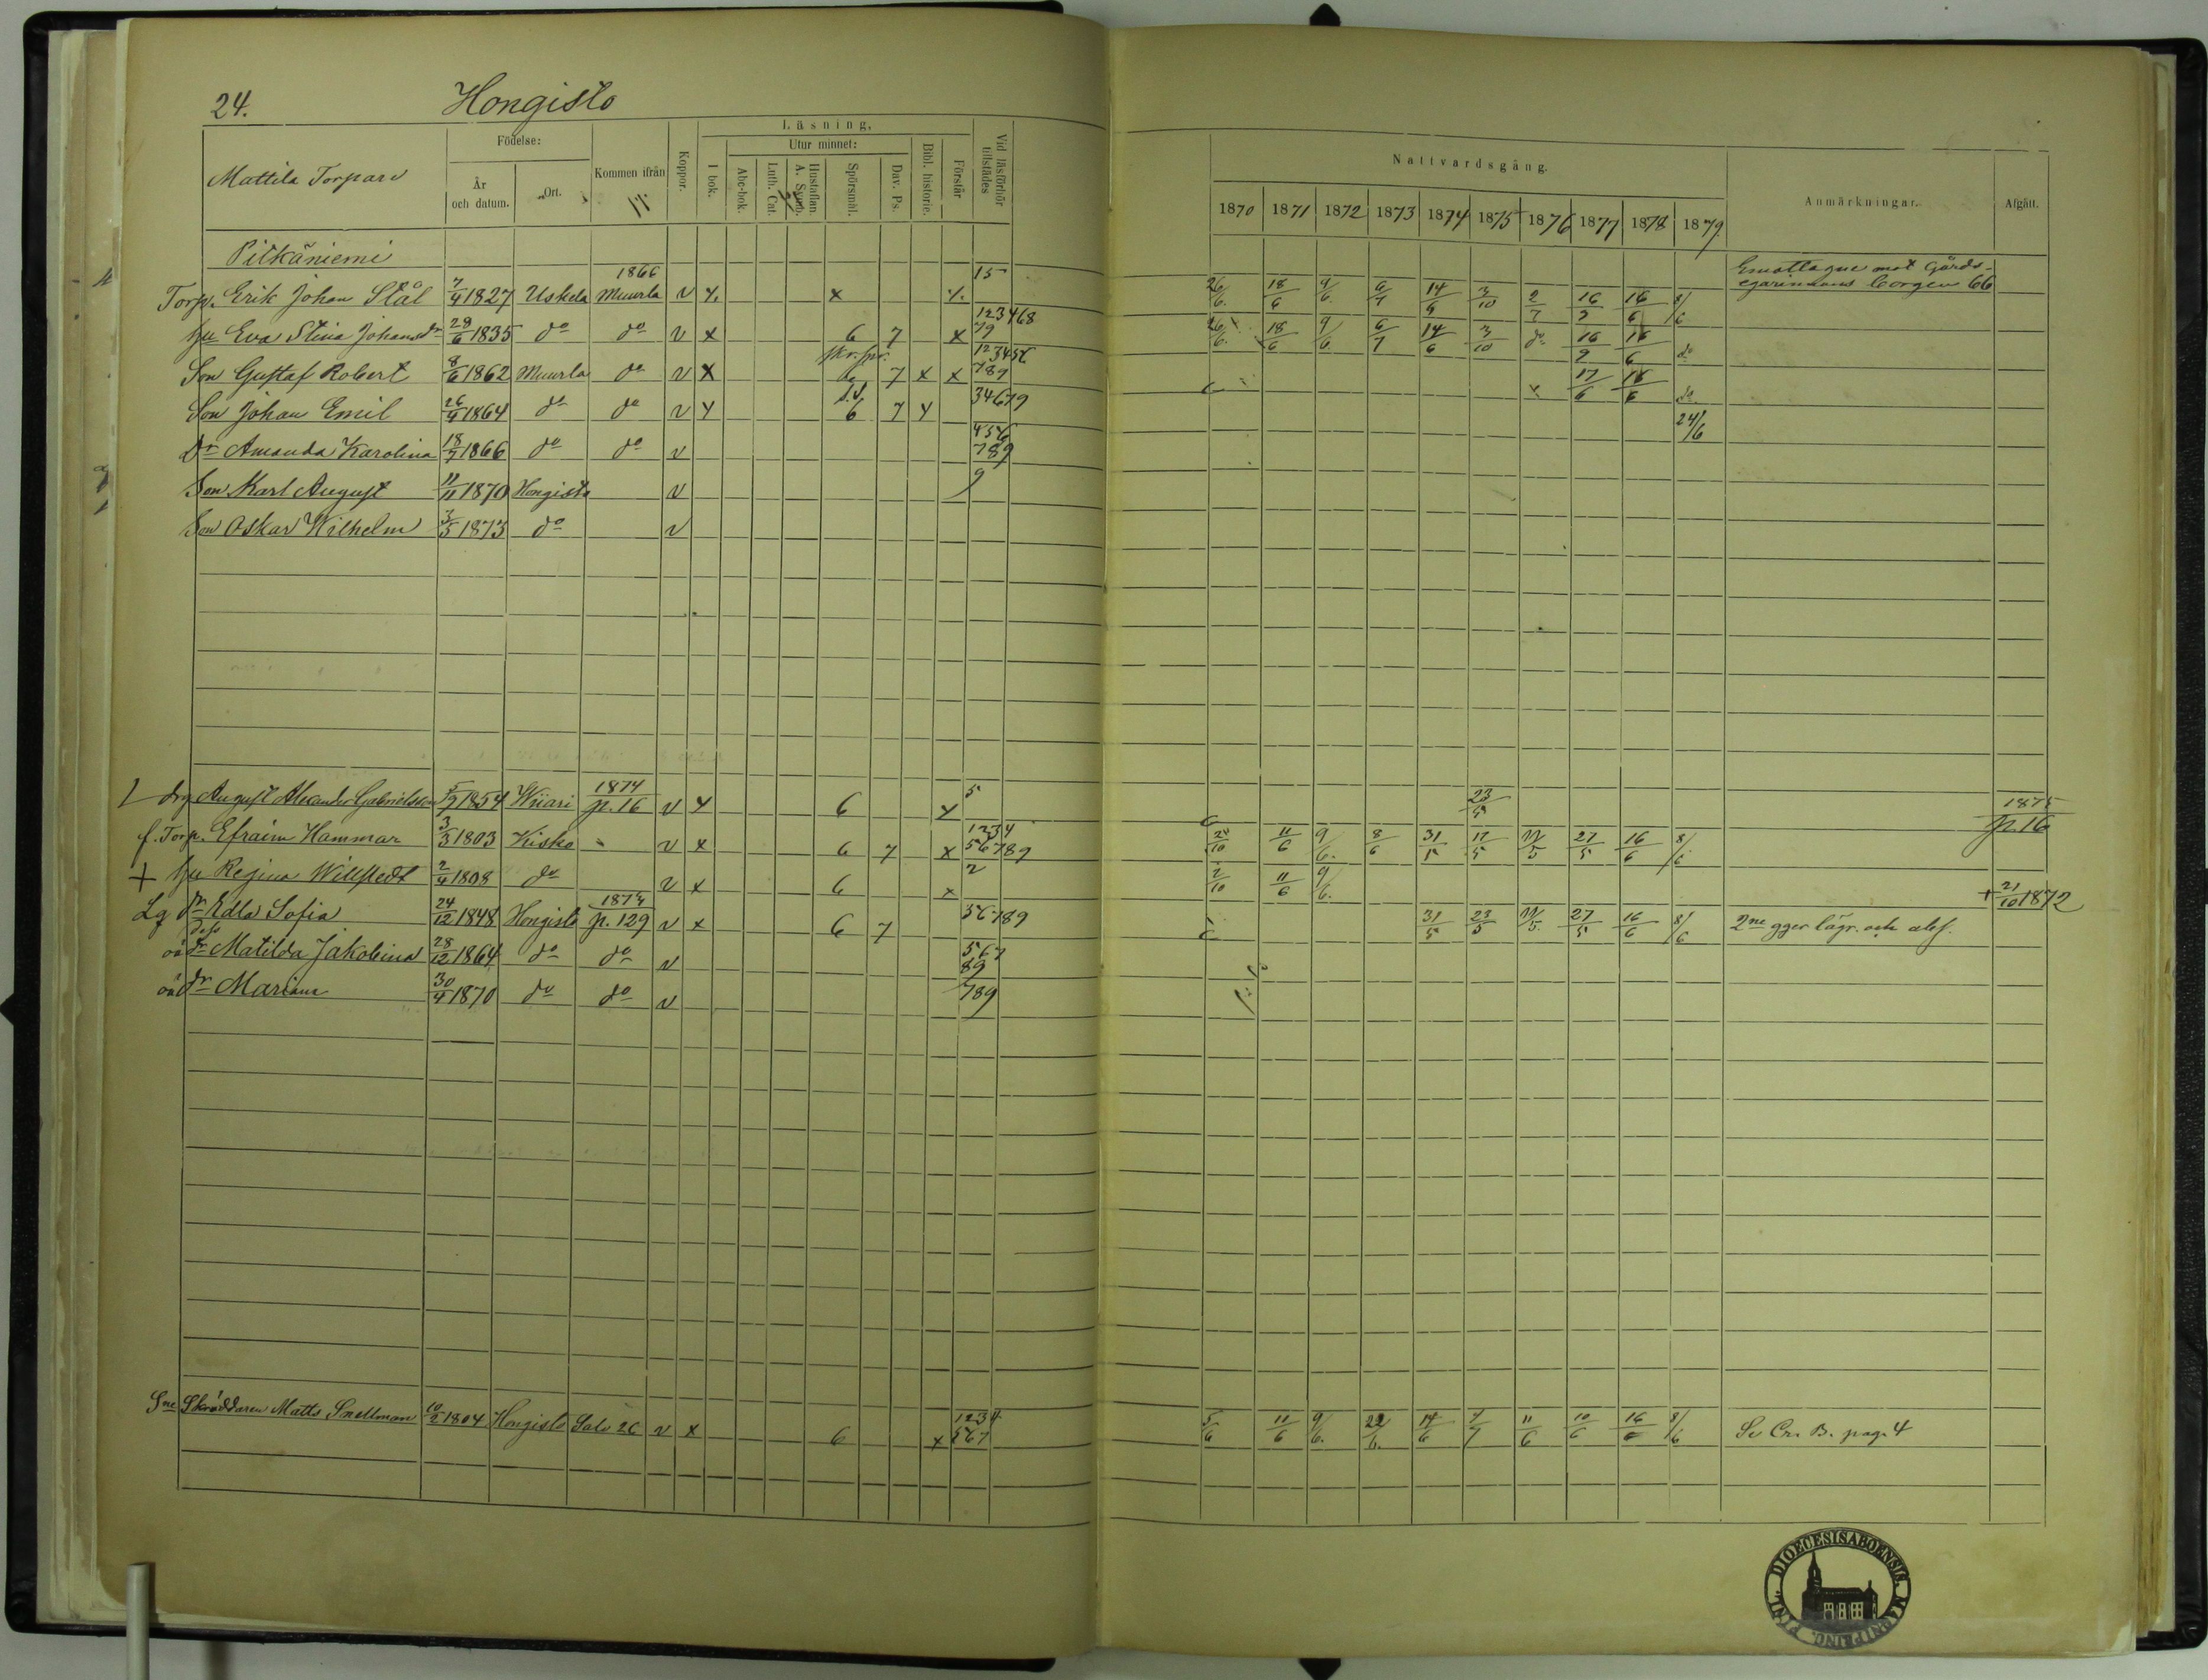 24. Hongisto
Mattila Torpare
Födelse:
År och datum.
Ort.
Kommen ifrån
Koppor.
Läsning.
I bok.
Utur minnet:
Abc-bok.
Luth. Cat.
Hustaflan A. Symb.
Spörsmål.
Dav. Ps.
Bibl. historie.
Förstår
Vid läsförhör tillstädes
Nattvardsgång.
1870 1871 1872 1873 1874 1875 1876 1877 1878 1879
Anmärkningar.
Afgått.
Pitkäniemi
Torp. Erik Johan Stål 7/4 1827 Uskela 1866 Muurla v x x 15 26/6. 18/6 9/6. 6/7 14/6 3/10 2/7 16/9 16/6 8/6 egarinnans borgen 66
hu Eva Stina Johansdr 28/6 1835 do do v x 6 7 x 123468 79 26/6. 18/6 9/6 6/7 14/6 3/10 do 16/9 16/6 do
Son Gustaf Robert 8/6 1862 Muurla do v x 7 x x 123456 789 17/6 16/6 do
Son Johan Emil 26/4 1864 do do v x 6 7 x 34679 24/6
Dr Amanda Karolina 18/7 1866 do do v 456 789
Son Karl August 11/11 1870 Hongisto v 9
Son Oskar Wilhelm 3/5 1873 do v
drg August Alexander Gabrielsson 5/7 1854 Wiiari 1874 p. 16 v x 6 x 5 23/5 1875 p. 16
f. Torp. Efraim Hammar 3/3 1803 Kisko v x 6 7 x 1234 56789 2/10 11/6 9/6. 8/6 31/5 17/5 27/5 16/6 8/6
+ hu Regina Willstedt 2/4 1808 do v x 6 x 2 2/10 11/6 9/6. + 21/10 1872
Lg dr Edla Sofia 24/12 1848 Hongisto 1873 p. 129 v x 6 7 56789 31/5 23/5 27/5 16/6 8/6 2ne gger lägr. och abs.
oä dr Matilda Jakobina 28/12 1864 do do v 567 89
oä dr Mariana 30/4 1870 do do v 789
Skräddaren Matts Snellman 10/2 1804 Hongisto Salo 26 v x 6 x 1234 567 5/6 11/6 9/6. 22/6. 14/6 4/7 11/6 10/6 16/6 8/6 Se Cr. B. pag. 4
DIOECESIS ABOENSIS